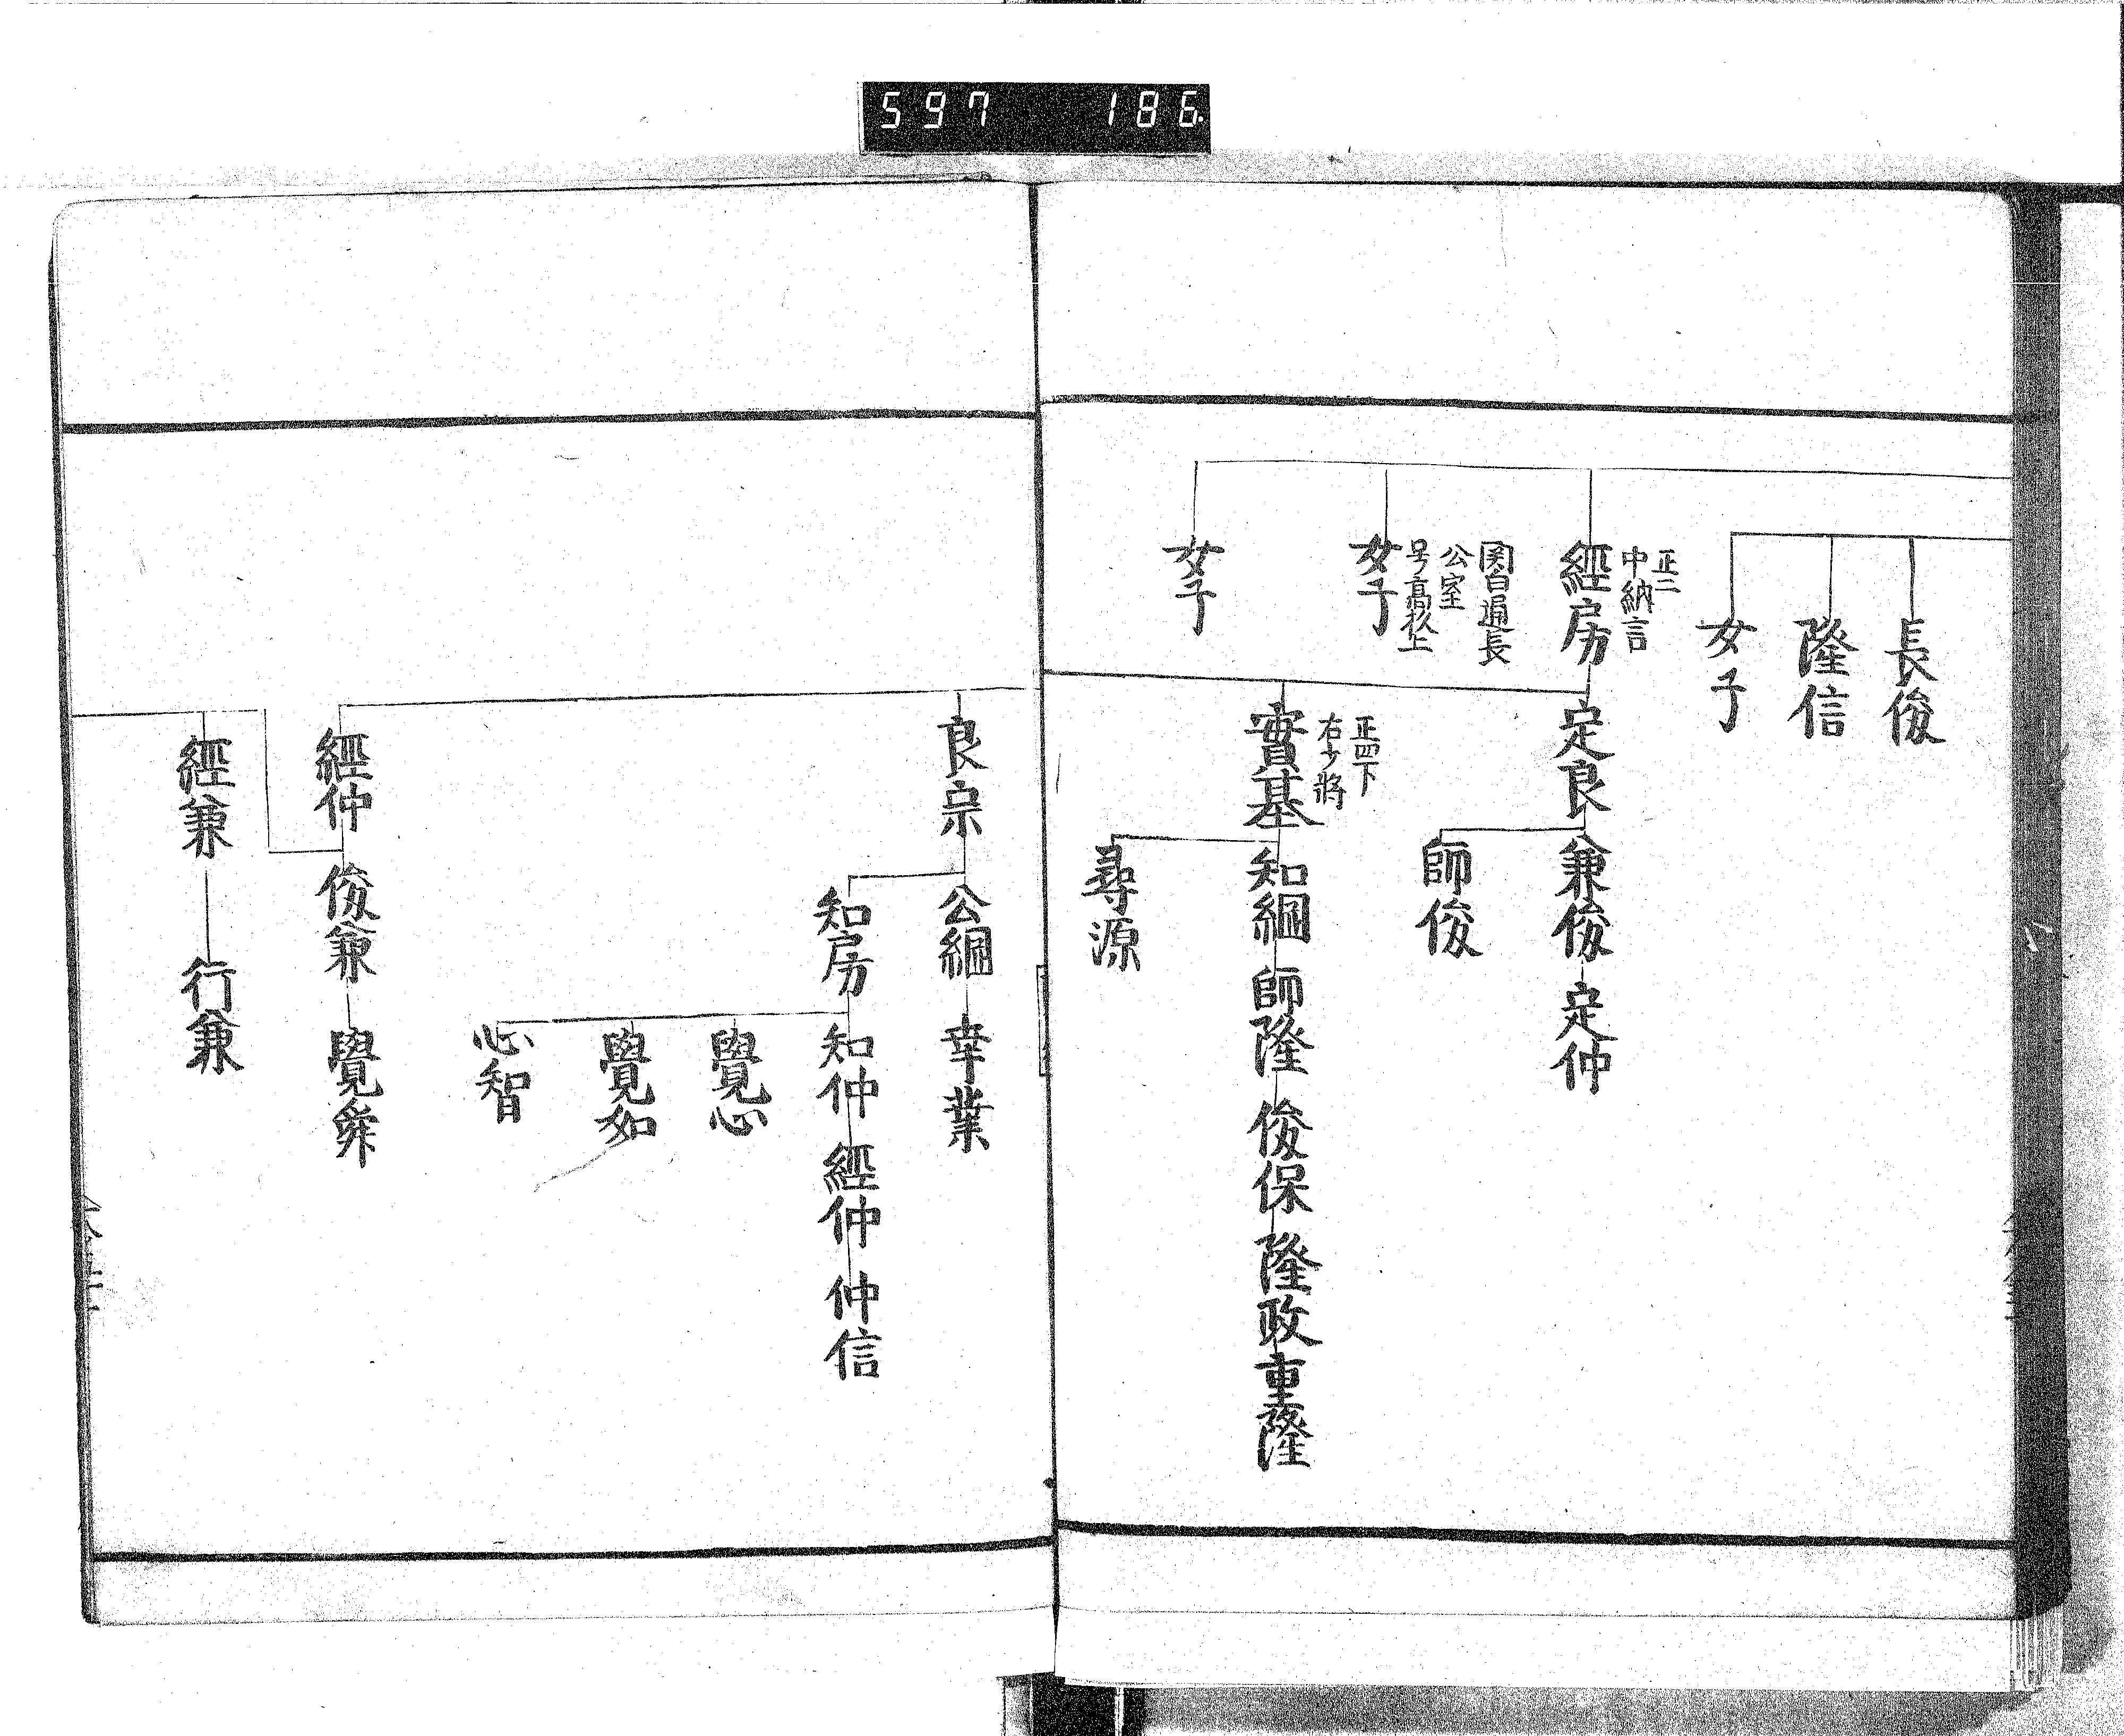 597 186
長俊
隆信
女子
正二
中納言
經房
定良
兼俊
定仲
師俊
関白通長
公室
号高松上
女子
正四下
右少将
實基
知綱
師隆
俊保
隆政
重隆
尋源
女子
良宗
公綱
幸業
知房
知仲
經仲
仲信
覺心
覺如
心智
經仲
俊兼
覺舜
經兼
行兼